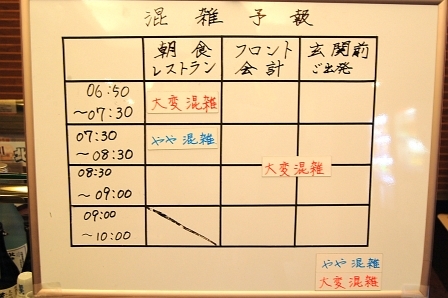 混雑予報
朝食 フロント 玄関前
レストラン 会計 ご出発
06:50
～07:30 大変混雑
07:30
～08:30 やや混雑
08:30
～09:00 大変混雑
09:00
～10:00
やや混雑
大変混雑